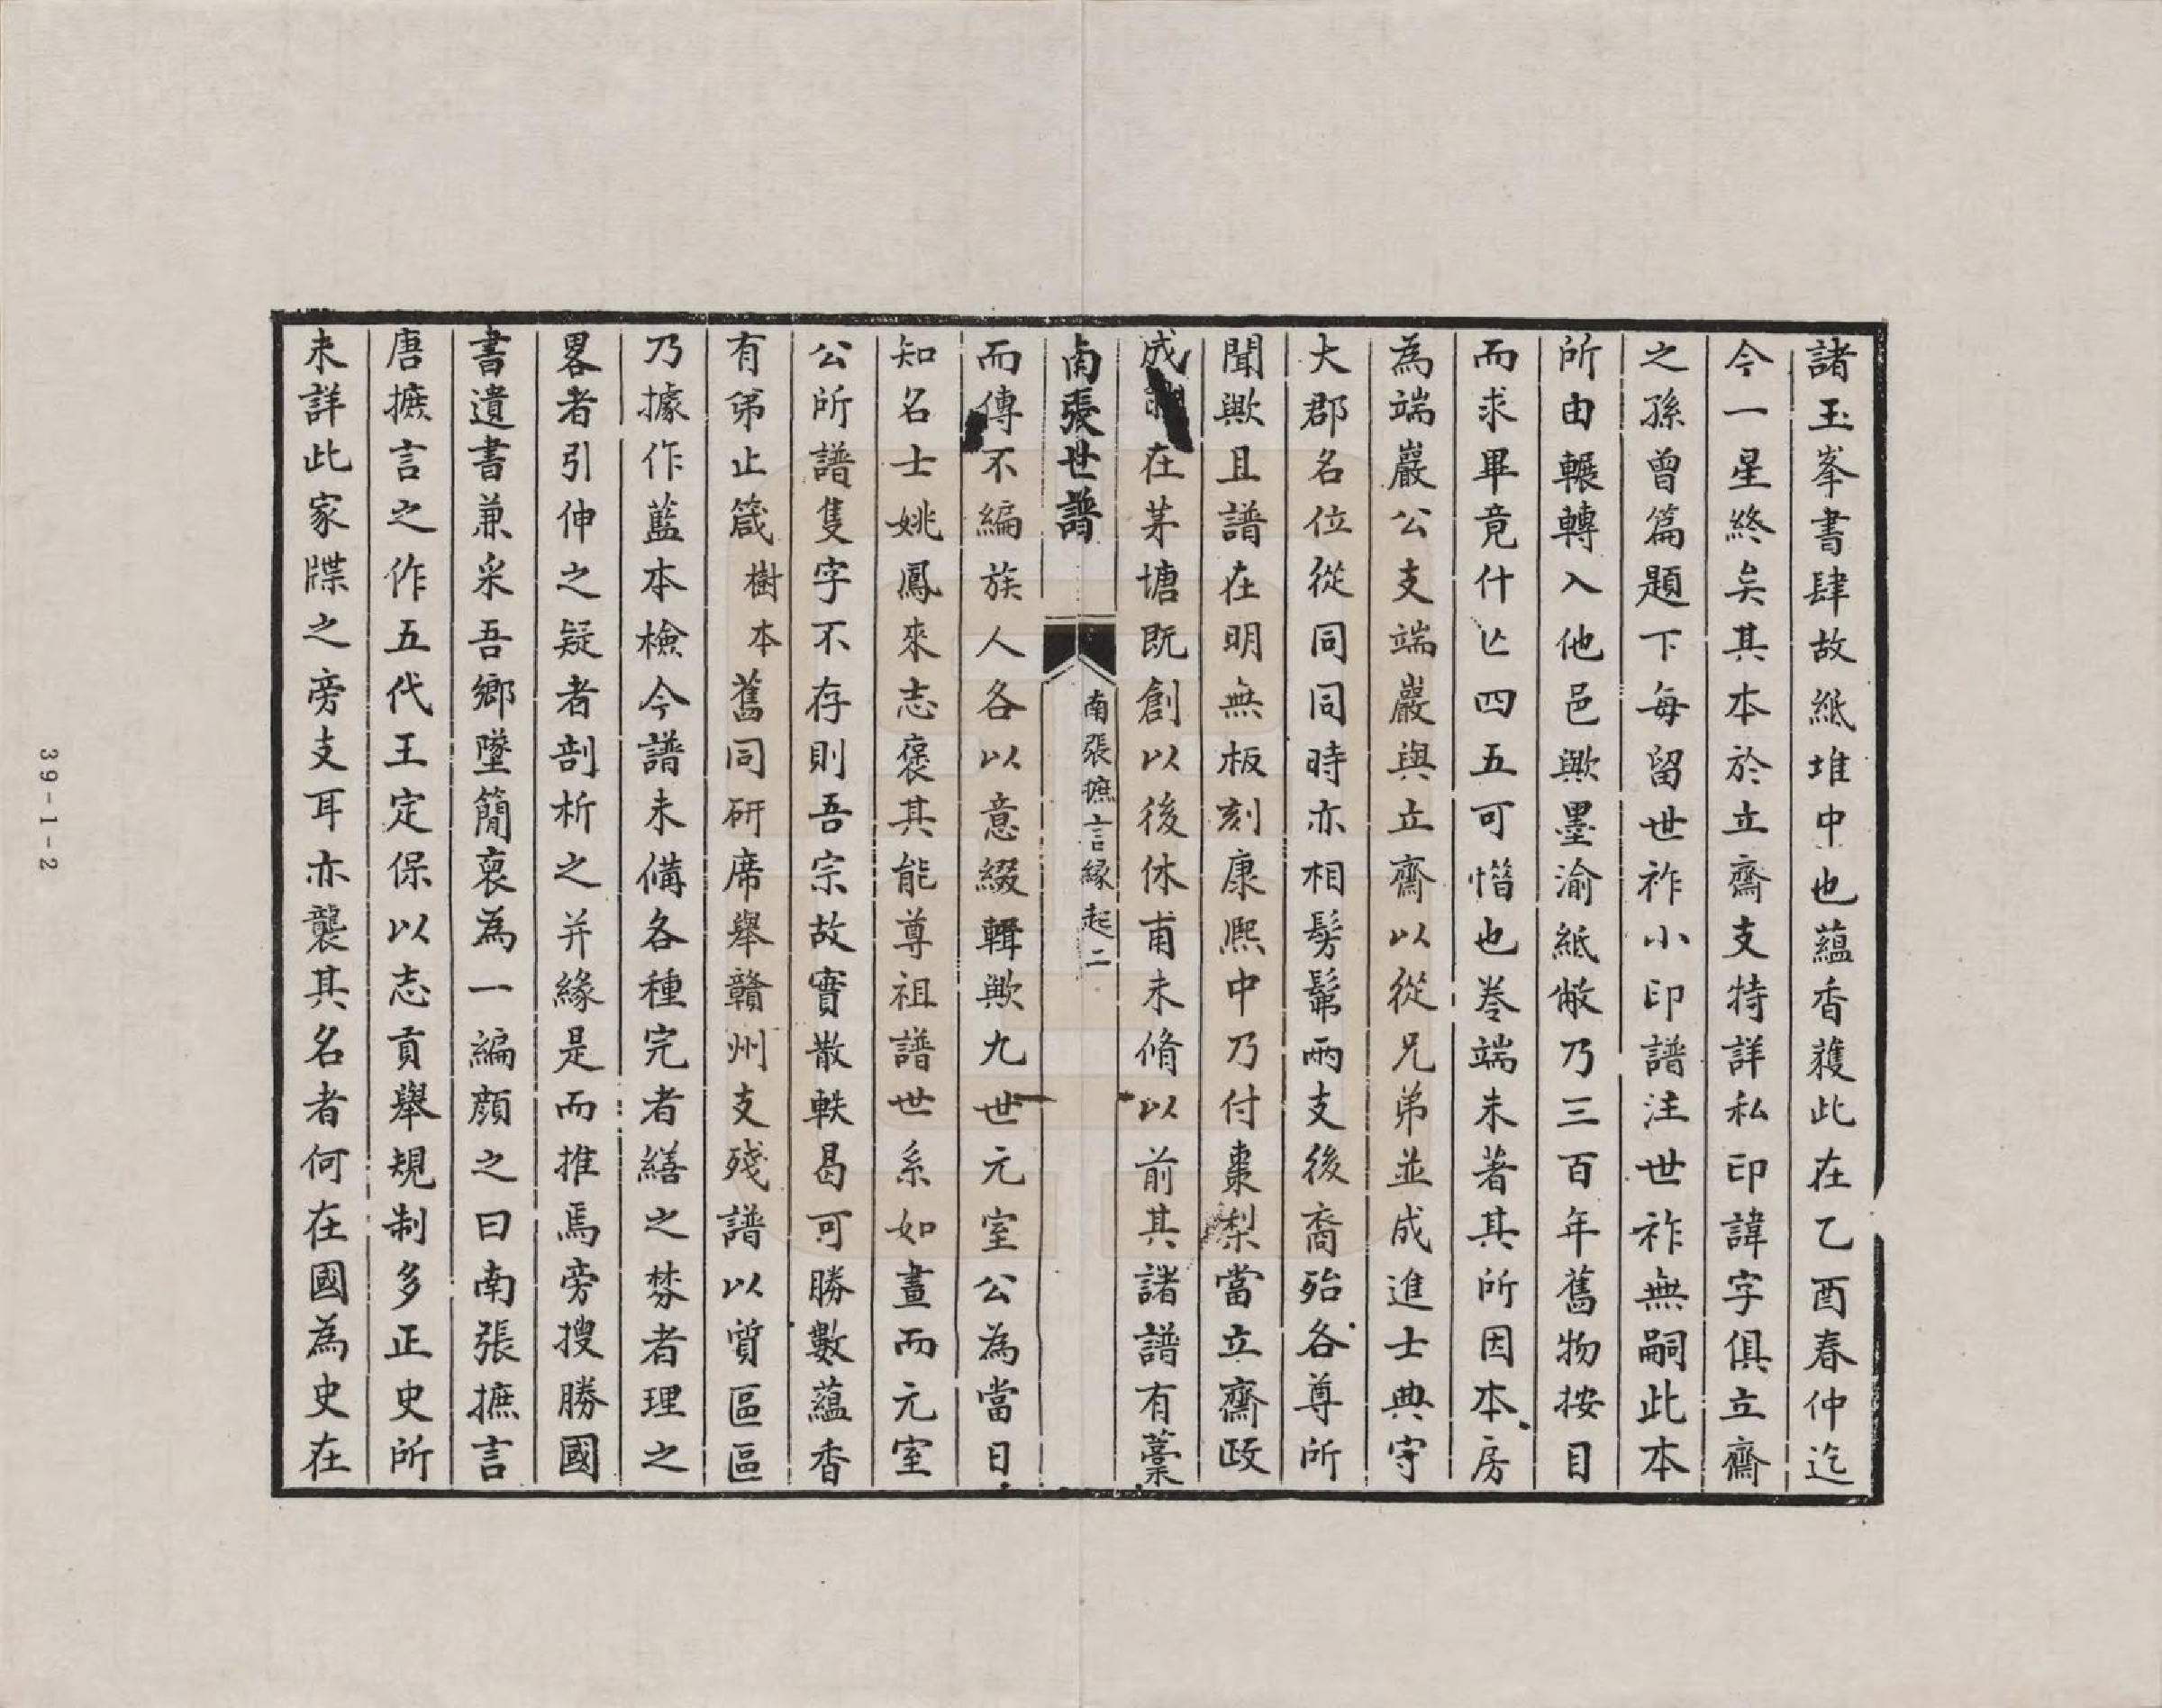 諸玉峯書肆故紙堆中也蘊香獲此在乙酉春仲迄
今一星終矣其本於立齋支特詳私印諱字俱立齋
之孫曾篇題下每留世祚小印譜注世祚無嗣此本
所由輾轉入他邑歟墨渝紙敝乃三百年舊物按目
而求畢竟什亾四五可惜也卷端未著其所因本房
為端巖公支端巖與立齋以從兄弟並成進士典守
大郡名位從同同時亦相髣髴兩支後裔殆各尊所
聞歟且譜在明無板刻康熙中乃付棗梨當立齋政
成在茅塘既創以後休甫未脩以前其諸譜有藁
南張世譜
南張摭言緣起二
而傳不編族人各以意綴輯歟九世元室公為當日
知名士姚鳳來志褒其能尊祖譜世系如畫而元室
公所譜隻字不存則吾宗故實散軼曷可勝數蘊香
有弟止箴樹本舊同研席舉贛州支殘譜以質區區
乃據作藍本檢今譜未備各種完者繕之棼者理之
畧者引伸之疑者剖析之并緣是而推焉旁搜勝國
書遺書兼采吾鄉墜簡裒為一編顏之曰南張摭言
唐摭言之作五代王定保以志貢舉規制多正史所
未詳此家牒之旁支耳亦襲其名者何在國為史在
39-1-2